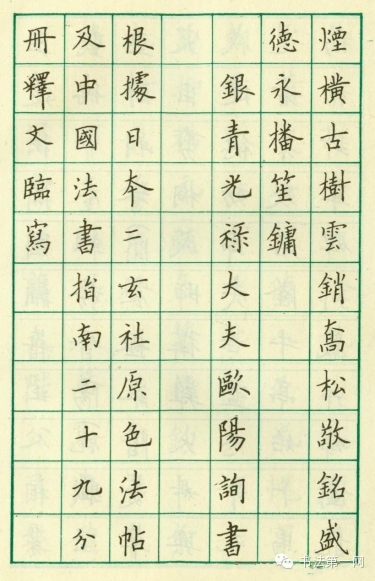 煙橫古樹雲銷喬松敬銘盛
德永播笙鏞
銀青光祿大夫歐陽詢書
根據日本二玄社原色法帖
及中國法書指南二十九分
冊釋文臨寫
书法第一网